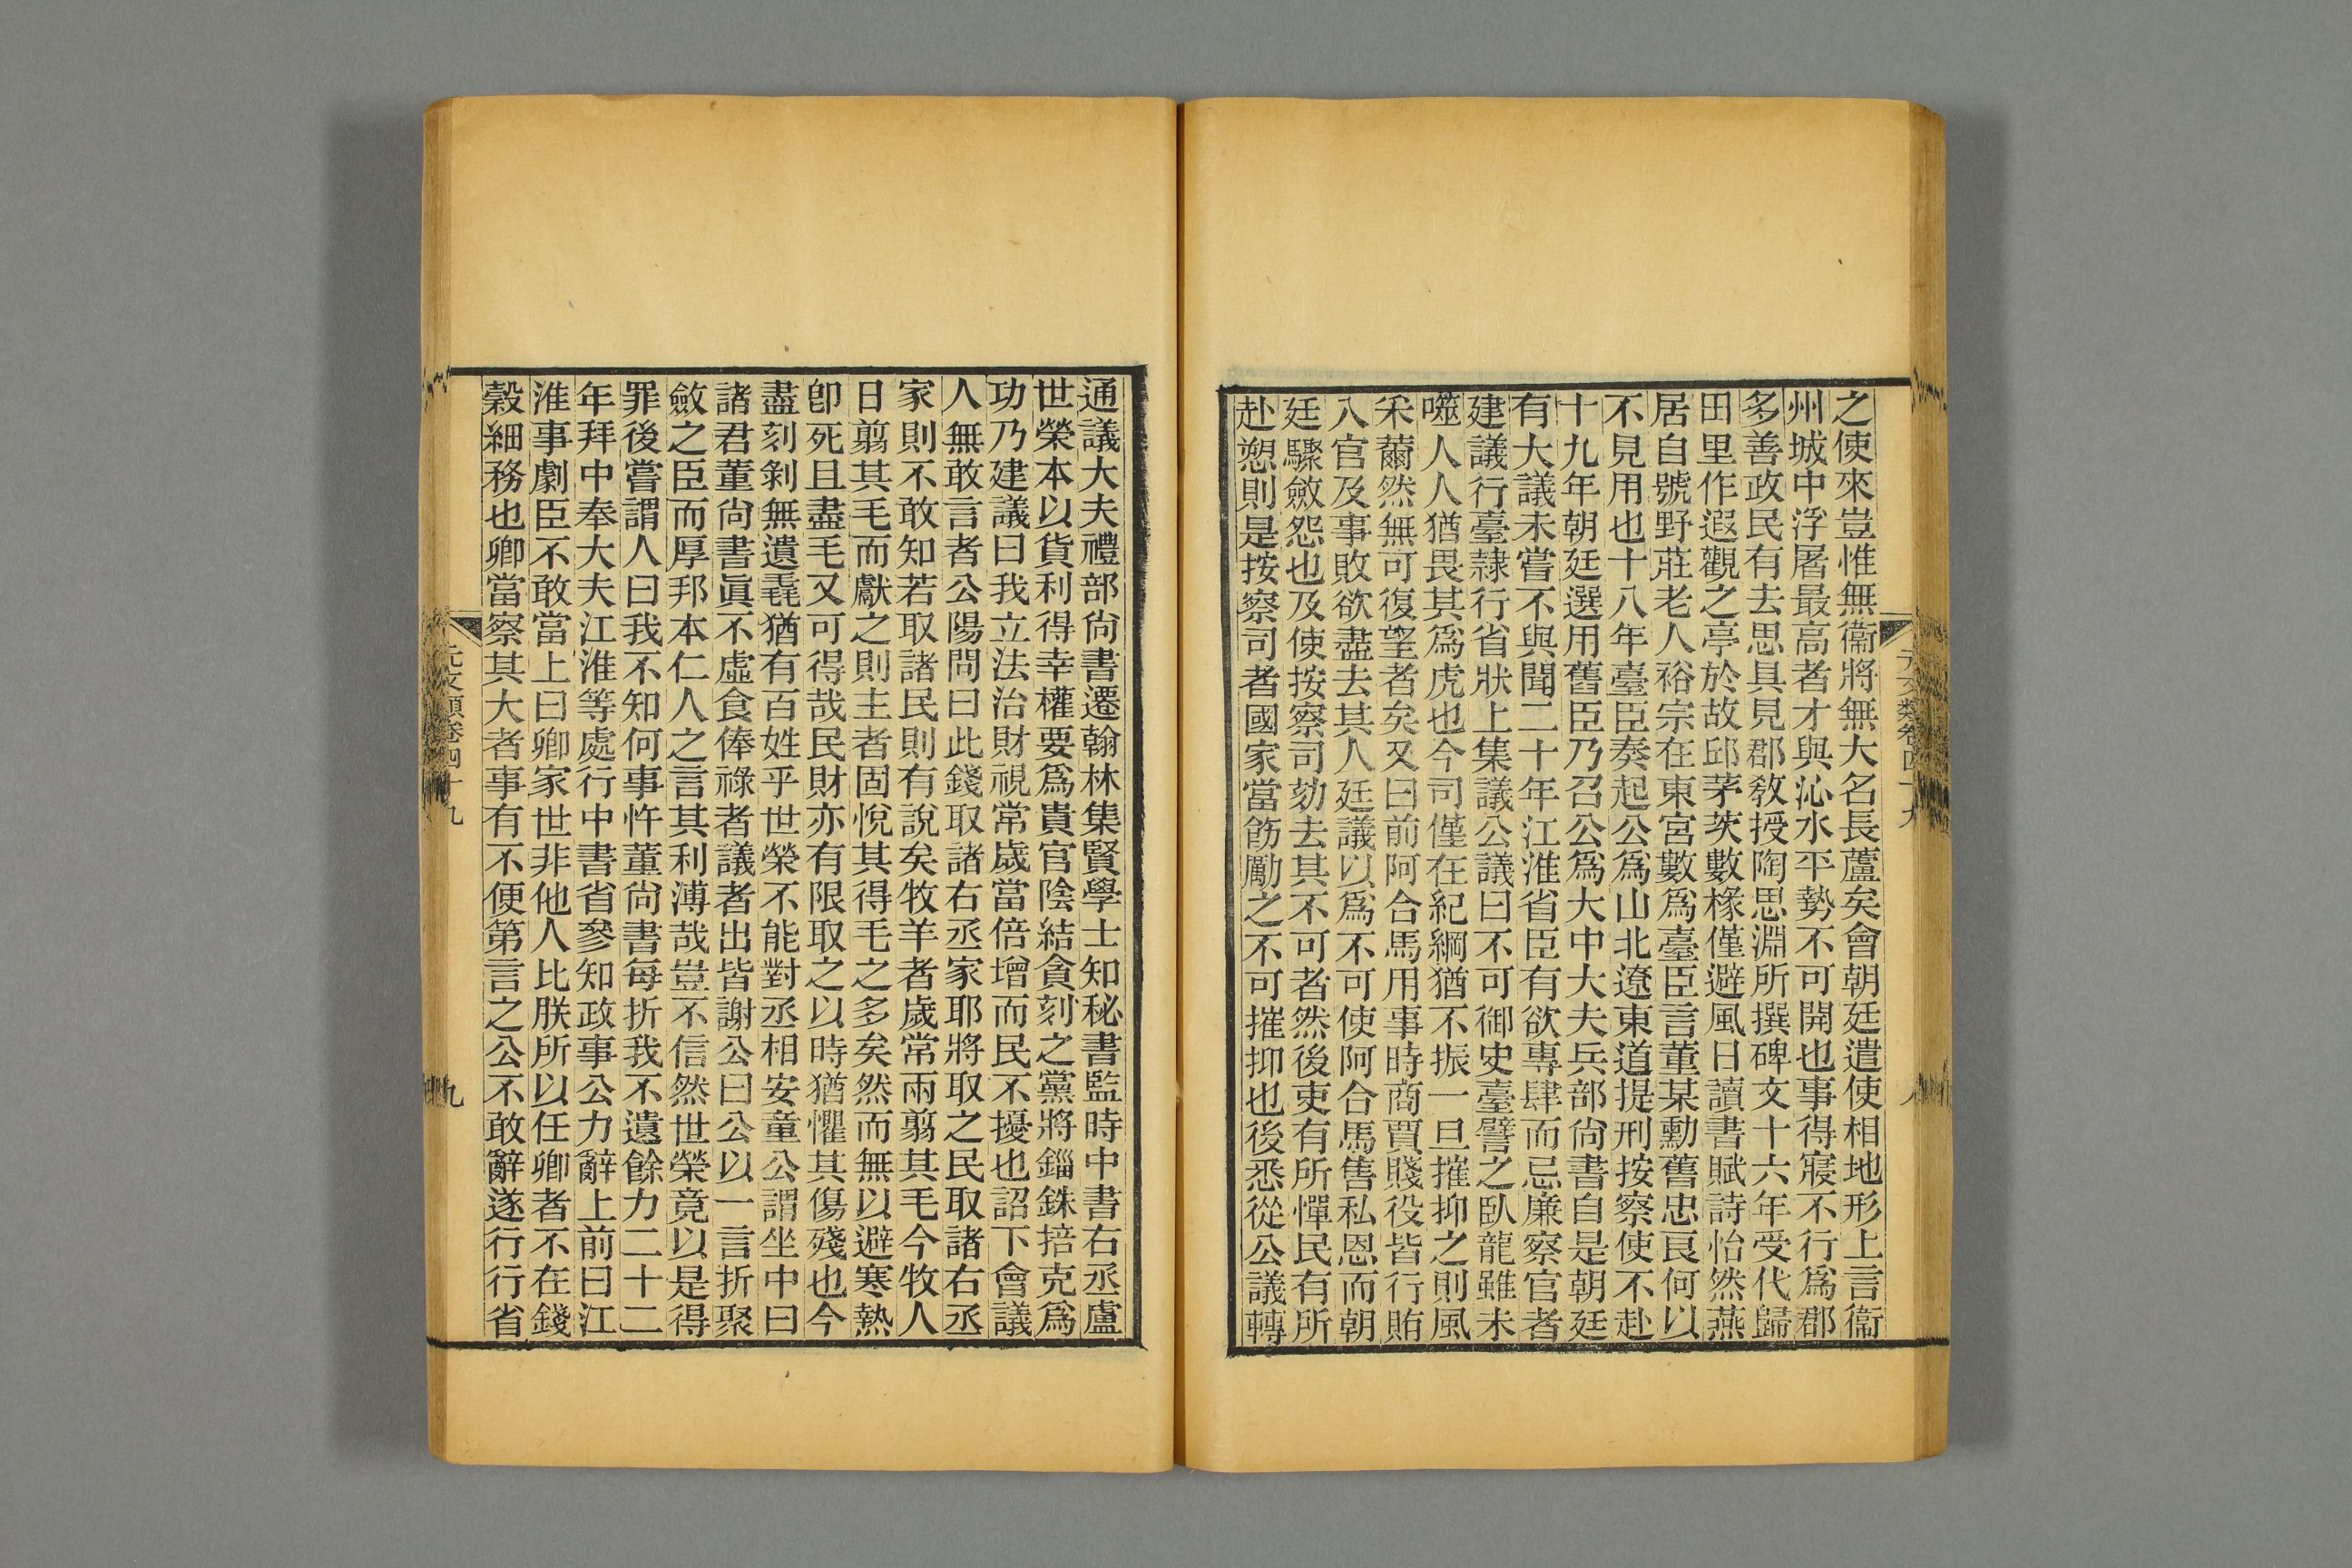 之使來豈惟無衞將無大名長蘆矣會朝廷遣使相地形上言衞
州城中浮屠最高者才與沁水平勢不可開也事得寢不行爲郡
多善政民有去思具見郡敎授陶思淵所撰碑文十六年受代歸
田里作遐觀之亭於故邱茅茨數椽僅避風日讀書賦詩怡然燕
居自號野莊老人裕宗在東宮數爲臺臣言董某勳舊忠良何以
不見用也十八年臺臣奏起公爲山北遼東道提刑按察使不赴
十九年朝廷選用舊臣乃召公爲大中大夫兵部尙書自是朝廷
有大議未嘗不與聞二十年江淮省臣有欲專肆而忌廉察官者
建議行臺隷行省狀上集議公議曰不可御史臺譬之臥龍雖未
噬人人猶畏其爲虎也今司僅在紀綱猶不振一旦摧抑之則風
釆薾然無可復望者矣又曰前阿合馬用事時商賈賤役皆行賄
入官及事敗欲盡去其人廷議以爲不可使阿合馬售私恩而朝
廷驟斂怨也乃使按察司劾去其不可者然後吏有所憚民有所
赴愬則是按察司者國家當飭勵之不可摧抑也後悉從公議轉
元文類卷四十九
八
通議大夫禮部尙書遷翰林集賢學士知秘書監時中書右丞盧
世榮本以貨利得幸權要爲貴官陰結貪刻之黨將錙銖掊克爲
功乃建議曰我立法治財視常歲當倍增而民不擾也詔下會議
人無敢言者公陽問曰此錢取諸右丞家耶將取之民取諸右丞
家則不敢知若取諸民則有說矣牧羊者歲常兩翦其毛今牧人
日翦其毛而獻之則主者固悅其得毛之多矣然而無以避寒熱
卽死且盡毛又可得哉民財亦有限取之以時猶懼其傷殘也今
盡刻剝無遺毳猶有百姓乎世榮不能對丞相安童公謂坐中曰
諸君董尙書眞不虛食俸祿者議者出皆謝公曰公以一言折聚
斂之臣而厚邦本仁人之言其利溥哉豈不信然世榮竟以是得
罪後嘗謂人曰我不知何事忤董尙書每折我不遺餘力二十二
年拜中奉大夫江淮等處行中書省參知政事公力辭上前曰江
淮事劇臣不敢當上曰卿家世非他人比朕所以任卿者不在錢
穀細務也卿當察其大者事有不便第言之公不敢辭遂行行省
元文類卷四十九
九